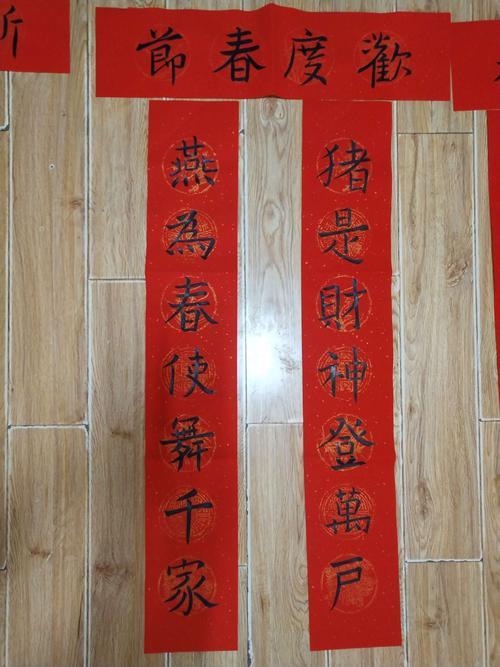 歡度春節
猪是財神登萬户
燕為春使舞千家